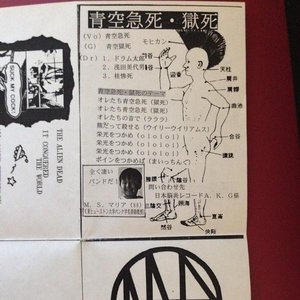 青空急死・獄死
(Vo) 青空急死
(G) 青空獄死
(Dr) 1. ドラム太郎
2. 浅田美代男
3. 桂惨死
モヒカン
天柱
肩井
曲池
合谷
青空急死×獄死のテーマ
オレたち青空急死 (獄死)
オレたち青空急死 (獄死)
オレたちの音で (ララララ)
熊だって殺せる (ウイリーウイリアムス)
栄光をつかめ (oioioi)
栄光をつかめ (oioioi)
栄光をつかめ (oioioi)
ボインをつかめば (まいっちんぐ)
全く凄い
バンドだ!
M. S. マリア (18)
問い合わせ先
日本脳炎レコードA. K. G係
然谷
侠谿
THE ALIEN DEAD
IT CONQUERED
THE WORLD
SUCK MY COCK!